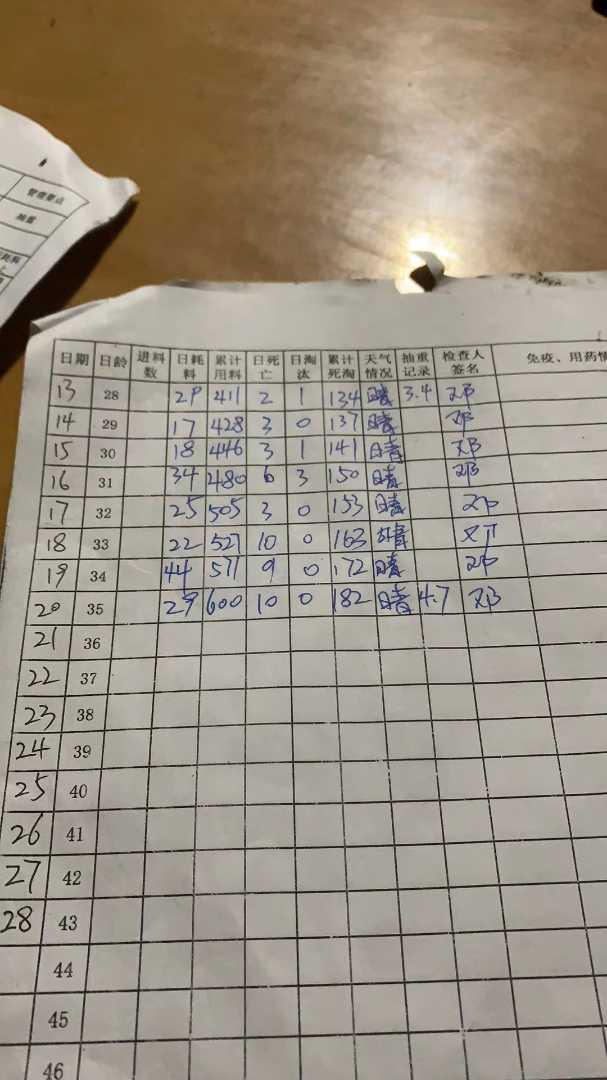 管理要点
日期 日龄 进料数 日耗料 累计用料 日死亡 日淘汰 累计死淘 天气情况 抽重记录 检查人签名 免疫、用药情
13 28 29 411 2 1 134 晴 3.4 邓
14 29 17 428 3 0 137 晴 邓
15 30 18 446 3 1 141 晴 邓
16 31 34 480 6 3 150 晴 邓
17 32 25 505 3 0 153 晴 邓
18 33 22 527 10 0 163 晴 邓
19 34 44 571 9 0 172 晴 邓
20 35 29 600 10 0 182 晴 4.7 邓
21 36
22 37
23 38
24 39
25 40
26 41
27 42
28 43
44
45
46